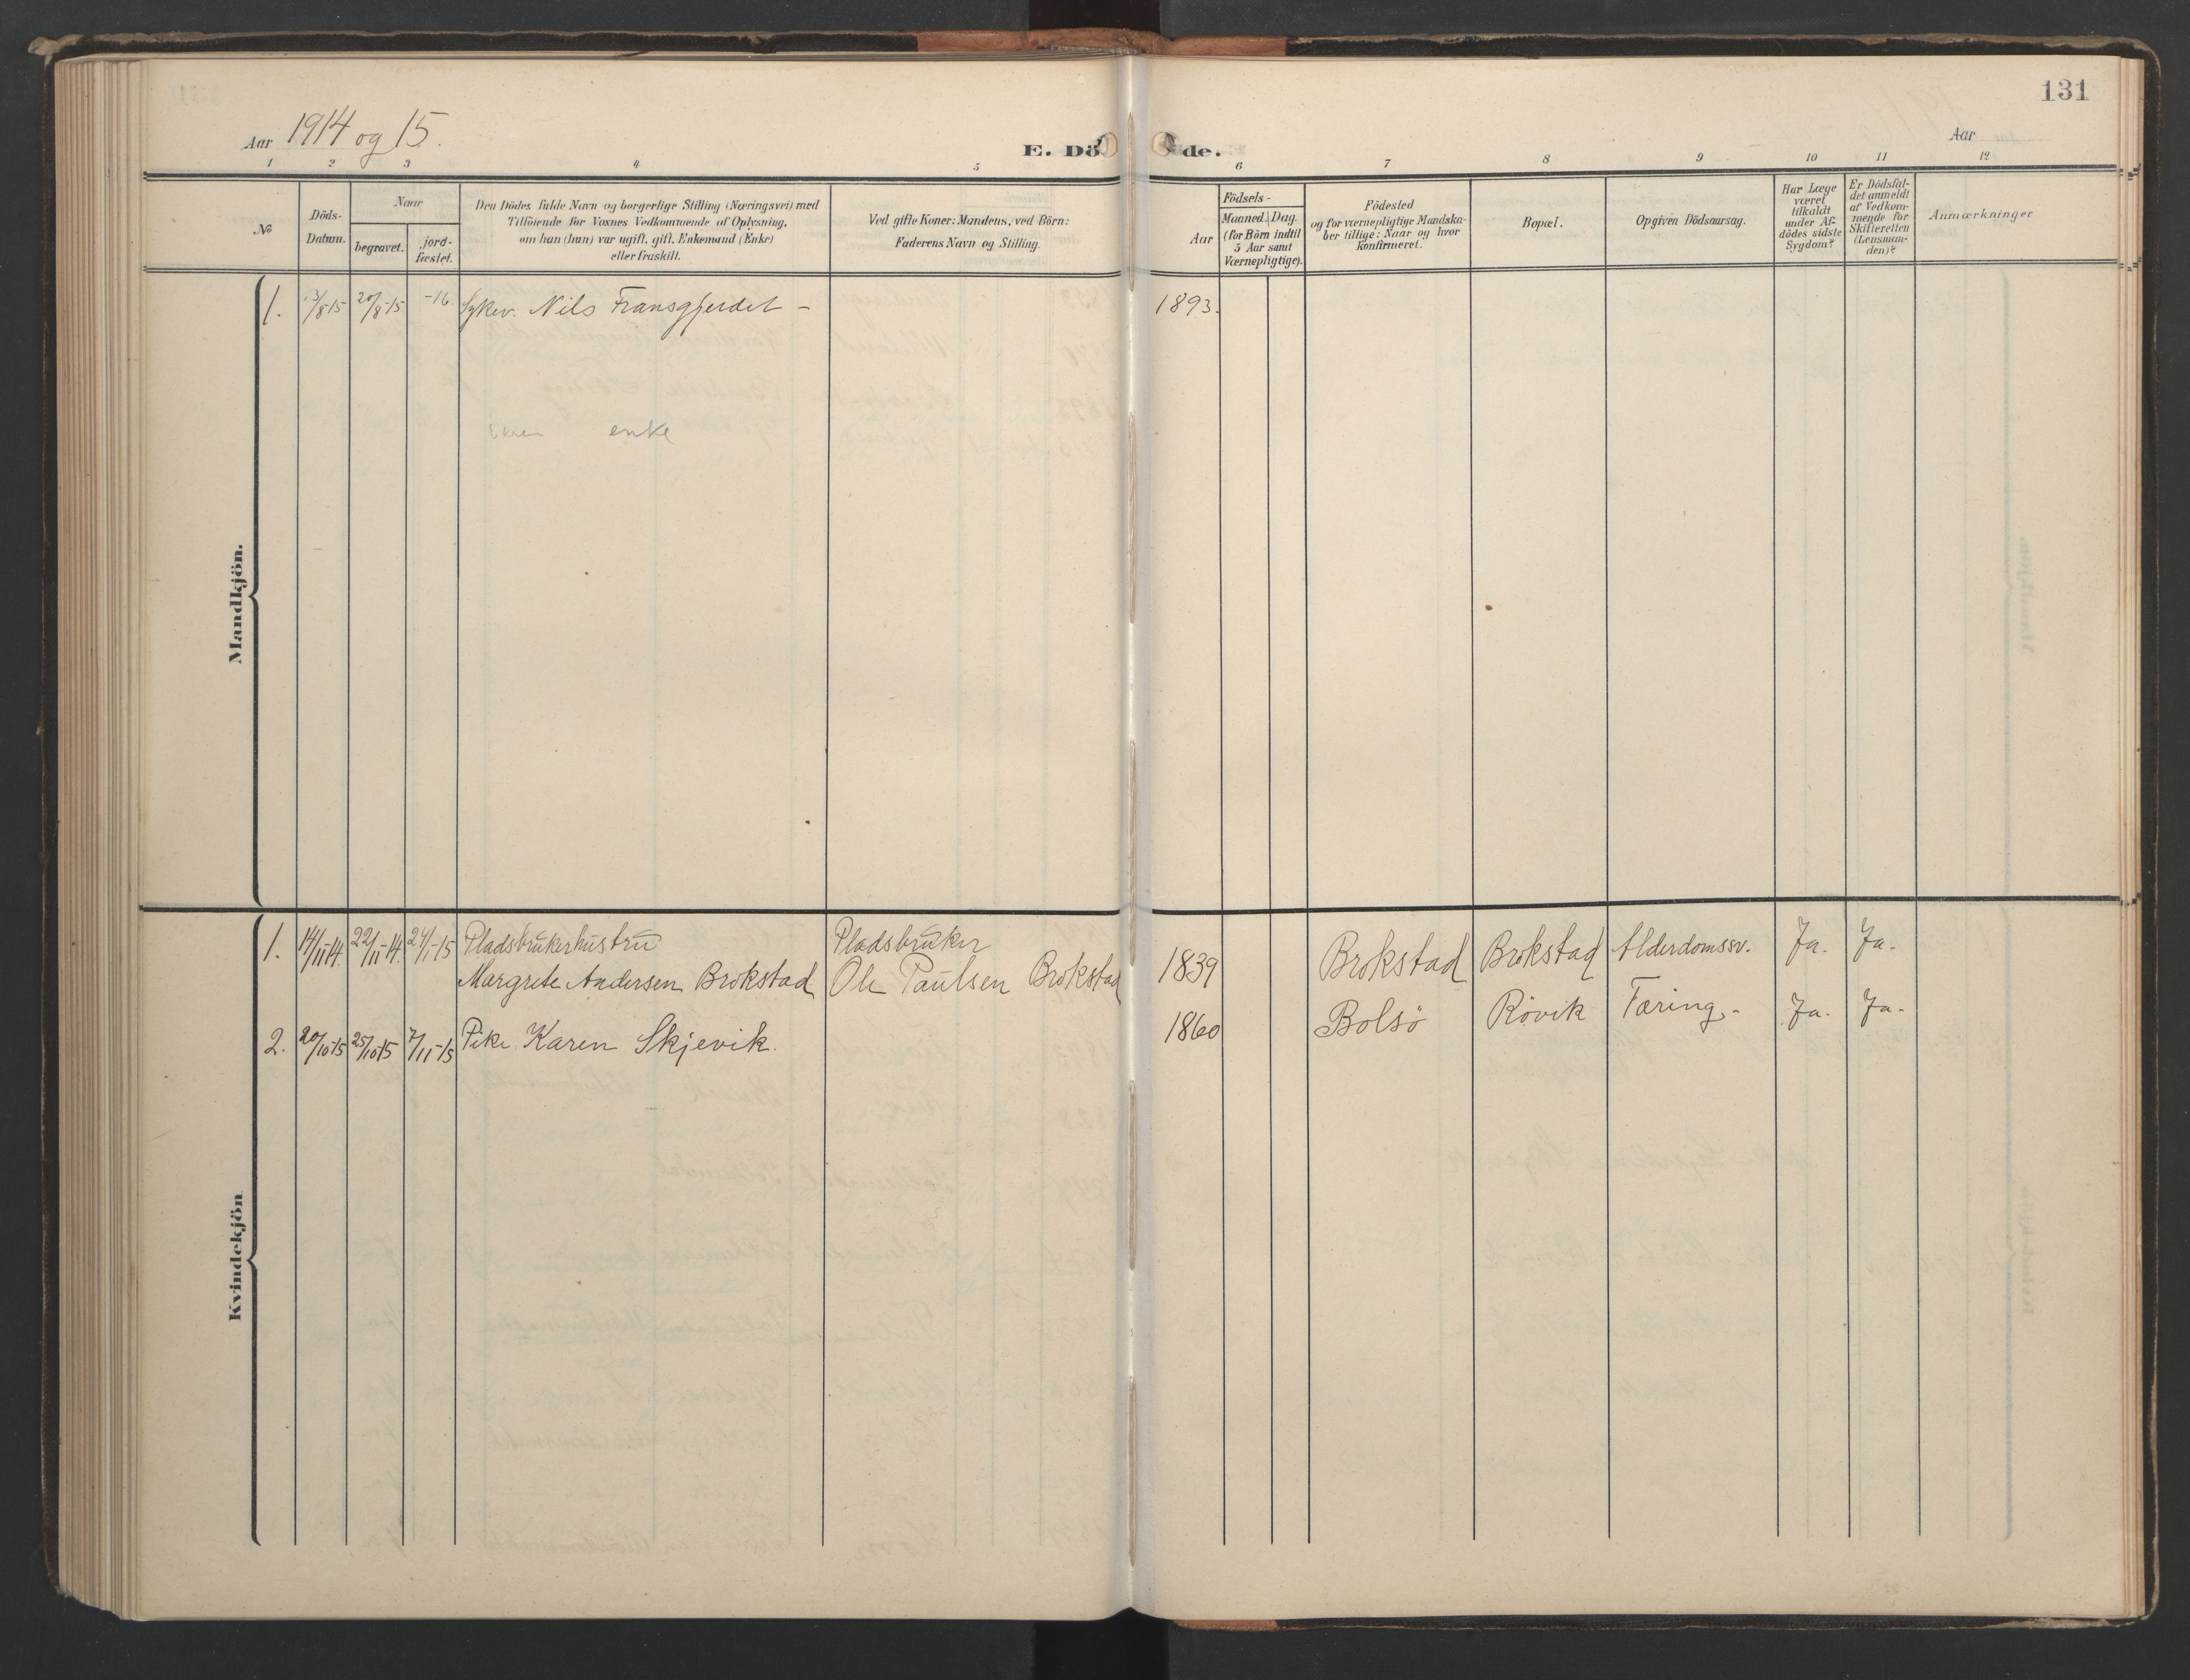 131
Aar 1914 og 15.
E. Dö de.
Aar
1 2 3 4 5 6 7 8 9 10 11 12
No
Döds-
Datum.
Naar
begravet.
jord-
fæstet.
Den Dödes fulde Navn og borgerlige Stilling (Næringsvei) med
Tilföiende for Voxnes Vedkommende af Oplysning,
om han (hun) var ugift, gift, Enkemand (Enke)
eller fraskilt.
Ved gifte Koner: Mandens, ved Börn:
Faderens Navn og Stilling.
Aar
Födsels-
Maaned. Dag.
(for Börn indtil
5 Aar samt
Værnepligtige).
Födested
og for værnepligtige Mandska-
ber tillige: Naar og hvor
konfirmeret.
Bopæl.
Opgiven Dödsaarsag.
Har Læge
været
tilkaldt
under Af-
dödes sidste
Sygdom?
Er Dödsfal-
det anmeldt
af Vedkom-
mende for
Skifteretten
(Lensman-
den)?
Anmærkninger
Mandkjön.
1. 13/8-15 20/8-15 -16. Nils Fransgjerdet - 1893.
enke
Kvindekjön
1. 14/11-14. 22/11-14. 24/1-15 Pladsbrukerhustru Pladsbruker
Margrete Andersen Brokstad Ole Paulsen Brokstad 1839 Brokstad Brokstad Alderdomssv. Ja. Ja.
2. 20/10-15 25/10-15 7/11-15 Pike Karen Skjevik. 1860 Bolsö Rövik Tæring.- Ja. Ja.